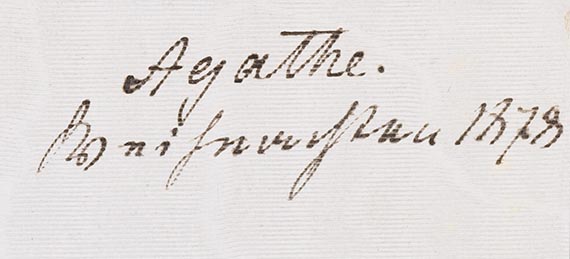 Agathe.
Weihnachten 1878